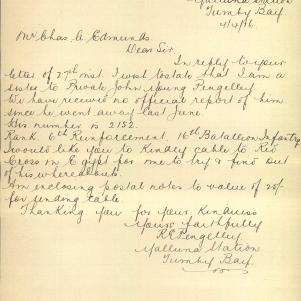 Yallunda Station
Tumby Bay.
4/4/16
Mr Chas. A Edmunds.
Dear Sir
In reply to your
letter of 27th inst. I wish to state that I am a
sister to Private John Young Pengelley
We have received no official report of him
since he went away last June.
His number is 2152.
Rank. 6th Reinforcement, 16th Batallion Infantry
I would like you to Kindly cable to Red
Cross in Egypt for me to try & find out
of his whereabouts.
Am enclosing postal notes to value of 25/-
for sending cable.
Thanking you for your Kindness
Yours faithfully
R E Pengelley
Yallunda Station
Tumby Bay.